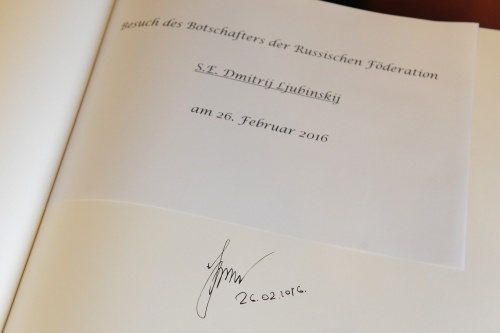 Besuch des Botschafters der Russischen Föderation
S.E. Dmitrij Ljubinskij
am 26. Februar 2016
26.02.2016.